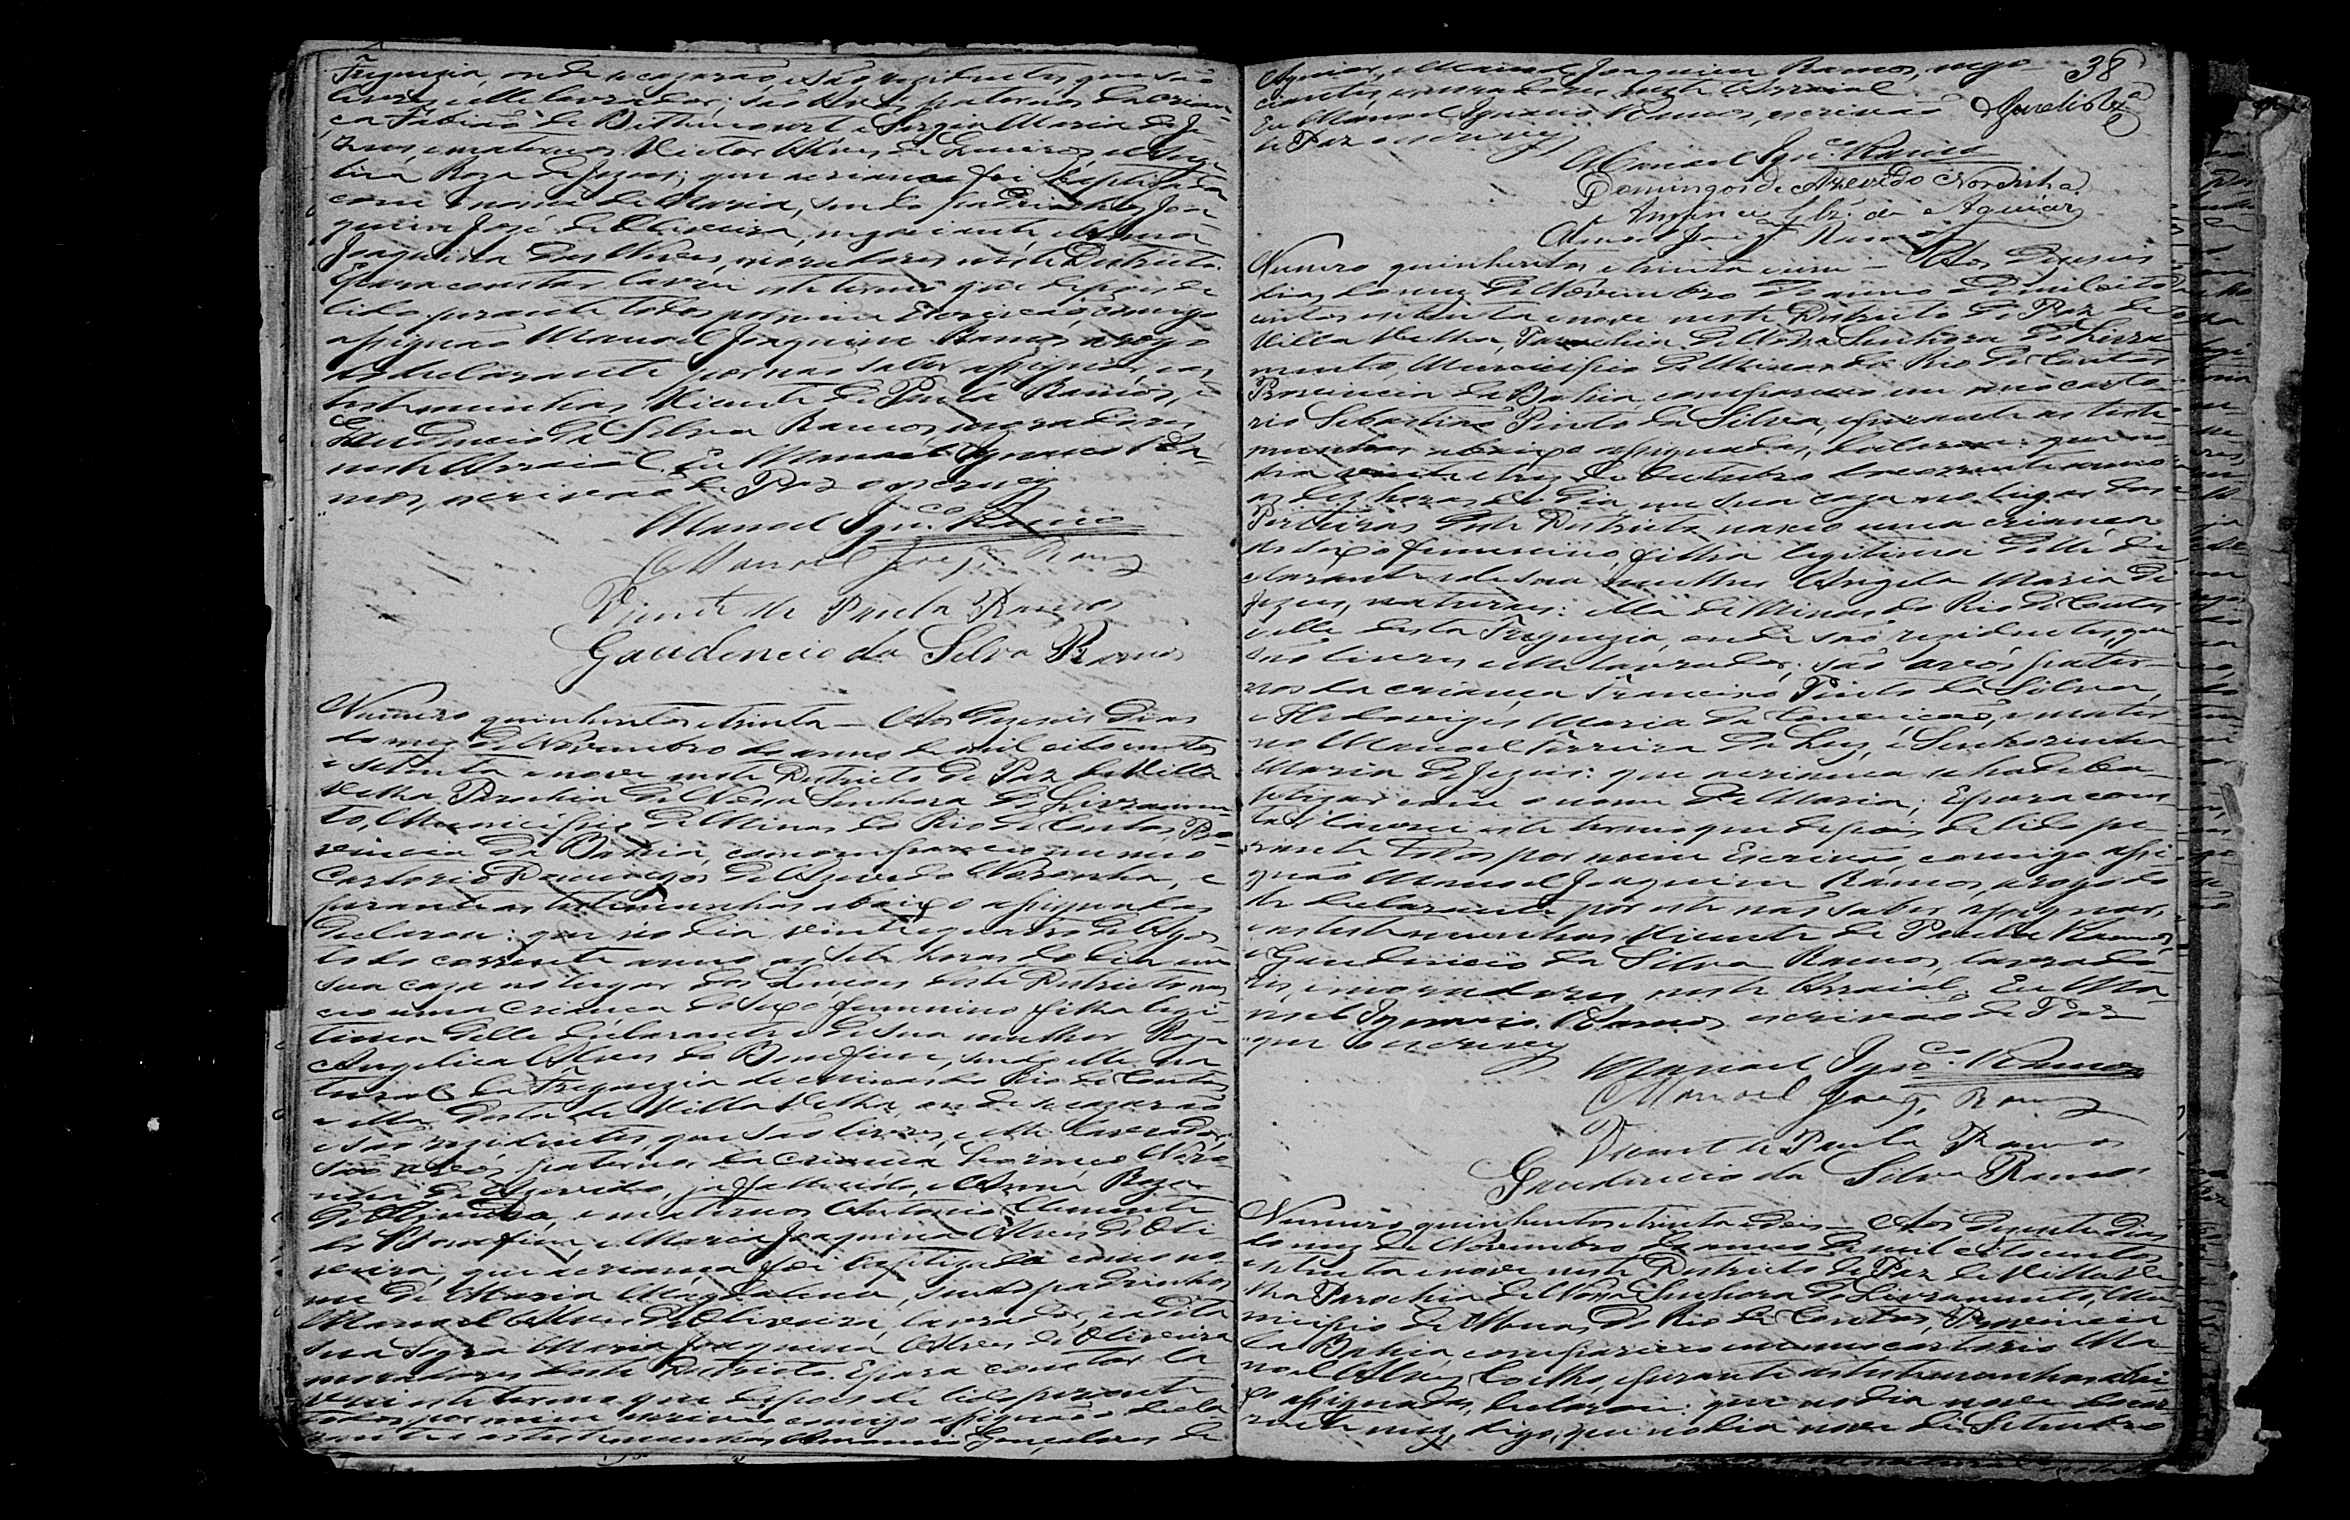 Freguezia, onde se cazarão, e são rezidentes, que são
livres, e elle lavrador; são avós paternos da crian-
ça Fabião de Bittencourt e Sergia Maria de Je-
zus, e maternos Victor Alves de
Roza de Jezus; que a criança foi baptizada
com o nome de Maria, sendo padrinhos Joa-
quim José de Oliveira, negociante e Anna
Joaquina das Neves, moradores neste Districto.
E para constar lavrei este termo que depois de
lido perante todos por mim Escrivão, comigo
assignão Manoel Joaquim Ramos a rogo
do declarante por não saber assignar, e as
testemunhas Vicente de Paula Ramos, e
Gaudencio da Silva Ramos, moradores
neste Arraial. Eu Manoel Ignacio Ra-
mos, escrivão de Paz o escrevi
Manoel Ignco. Ramos
Manoel Joaqm. Ramos
Vicente de Paula Ramos
Gaudencio da Silva Ramos
Numero quinhentos e trinta — Aos dezeseis dias
do mez de Novembro do anno de mil oito centos
e setenta e nove neste Districto de Paz da Villa
Velha, Parochia de Nossa Senhora do Livramen-
to, Municipio de Minas do Rio de Contas, Pro-
vincia da Bahia, compareceo em meo
Cartorio Domingos de Azevedo Noronha, e
perante as testemunhas abaixo assignadas
declarou: que no dia vinte e quatro de Agos-
to do corrente anno as sete horas do dia em
sua caza no lugar dos deste Districto nas-
ceo uma criança do sexo feminino filha legi-
tima delle declarante e de sua mulher Roza
Angelica Alves do Bomfim, sendo elle na-
tural da Freguezia de Minas do Rio de Contas
e ella desta de Villa Velha, onde se cazarão
e são rezidentes, que são livres, e elle lavrador;
são avós paternos da criança Noro-
nha de Azevedo, já fallecido, e Anna Roza
de Oliveira, e maternos Antonio Clemente
do Bomfim, e Maria Joaquina Alves de Oli-
veira; que a criança foi baptizada com o no-
me de Maria Magdalena, sendo padrinhos
Manoel Alves de Oliveira, lavrador, e a dita
sua sogra Maria Joaquina Alves de Oliveira
moradores deste Districto. E para constar la-
vrei este termo que depois de lido perante
todos por mim escrivão comigo assignão decla-
rante e as testemunhas Amancio Gonçalves de
Aguiar, e Manoel Joaquim Ramos, nego-
ciantes, e moradores neste Arraial
Eu Manoel Ignacio Ramos, escrivão
de Paz o escrevi
38
Manoel Ignco. Ramos
Domingos de Azevedo Noronha
Amancio Glz. de Aguiar
Manoel Joaqm. Ramos
Numero quinhentos e trinta e um — Aos dezeseis
dias do mez de Novembro do anno de mil oito
centos e setenta e nove neste Districto de Paz de
Villa Velha, Parochia de Nossa Senhora do Livra-
mento, Municipio de Minas do Rio de Contas
Provincia da Bahia, compareceo em meo carto-
rio Sebastião Pinto da Silva, e perante as teste-
munhas abaixo assignadas, declarou: que no
dia vinte e tres de Outubro do corrente anno
as dez horas do dia, em sua caza no lugar das
Porteiras deste Districto nasceo uma criança
do sexo feminino, filha legitima delle de-
clarante e de sua mulher Angela Maria de
Jezus, naturaes: ella de Minas do Rio de Contas
e elle desta Freguezia, onde são rezidentes, que
são livres, e elle lavrador; são avós pater-
nos da criança Francisco Pinto da Silva,
e Hedwiges Maria da Conceicão, e mater-
no Manoel Ferreira da Luz, e Senhorinha
Maria de Jezus: que a criança se hade ba-
ptizar com o nome de Maria; E para cons-
tar lavrei este termo que depois de lido pe-
rante todos por mim Escrivão comigo assi-
gnão Manoel Joaquim Ramos, a rogo do
do declarante por este não saber assignar,
e as testemunhas Vicente de Paula Ramos,
e Gaudencio da Silva Ramos, lavrado-
res, e moradores neste Arraial. Eu Ma-
noel Ignacio Ramos escrivão de Paz
que o escrevi
Manoel Ignco. Ramos
Manoel Joaqm. Ramos
Vicente de Paula Ramos
Gaudencio da Silva Ramos
Numero quinhentos e trinta e dois — Aos dias
do mez de Novembro do anno de mil oito centos
e setenta e nove neste Districto de Paz de Villa Ve-
lha Parochia de Nossa Senhora do Livramento, Mu-
nicipio de Minas do Rio de Contas, Provincia
da Bahia, compareceo em meo cartorio Ma-
noel Alves Coelho, e perante as testemunhas abai-
xo assignadas, declarou: que no dia nove do cor-
rente mez, digo, que no dia nove de Setembro